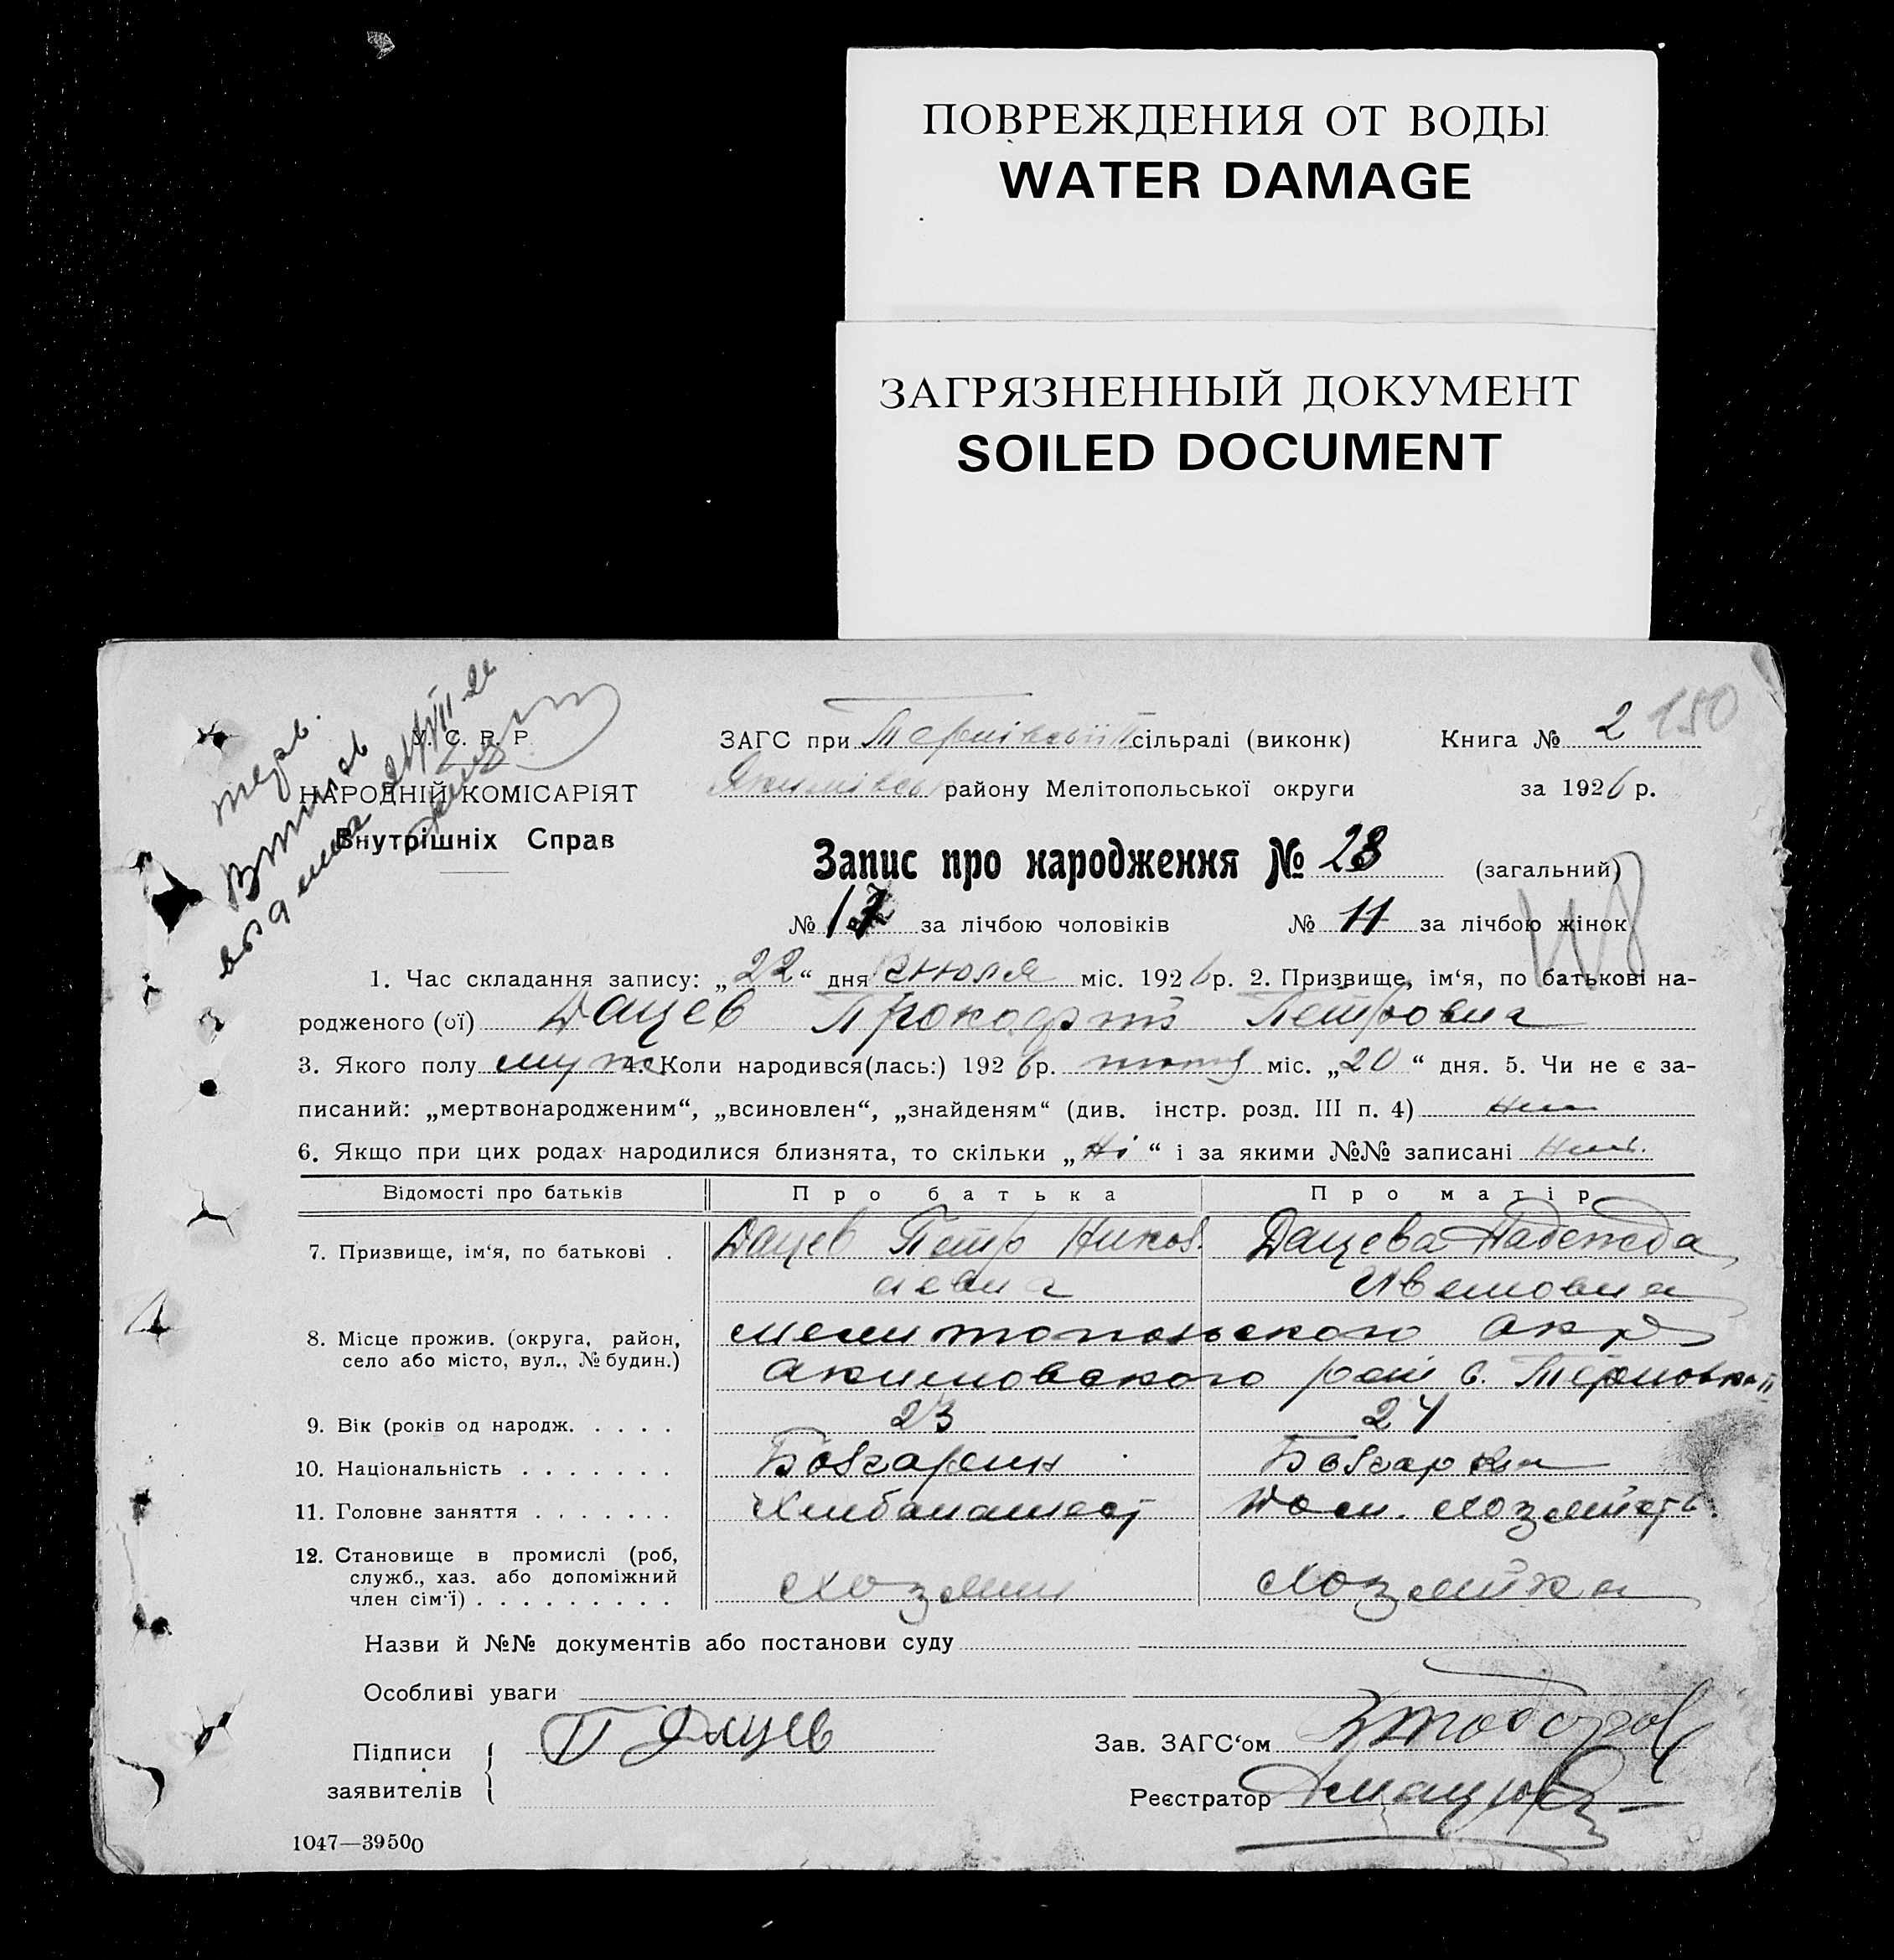 ПОВРЕЖДЕНИЯ ОТ ВОДЫ
WATER DAMAGE
ЗАГРЯЗНЕННЫЙ ДОКУМЕНТ
SOILED DOCUMENT
У. С. Р. Р.
НАРОДНІЙ КОМІСАРІЯТ
Внутрішніх Справ
ЗАГС при Тернівській II сільраді (виконк) Книга № 2 150
Якимівськ району Мелітопольської округи за 1926 р.
Запис про народження № 28 (загальний)
№ 17 за лічбою чоловіків № 11 за лічбою жінок
1. Час складання запису: „22“ дня июля міс. 1926 р. 2. Призвище, ім‘я, по батькові на-
родженого (ої) Дацев Прокофий Петрович
3. Якого полу муж 4. Коли народився(лась:) 1926 р. июля міс. „20“ дня. 5. Чи не є за-
писаний: „мертвонародженим“, „всиновлен“, „знайденям“ (див. інстр. розд. III п. 4) Нет
6. Якщо при цих родах народилися близнята, то скільки „Ні“ і за якими №№ записані Нет.
Відомості про батьків Про батька Про матір
7. Призвище, ім‘я, по батькові . Дацев Петр Никол. Дацева Надежда
аевич Ивановна
8. Місце прожив. (округа, район, Мелитопольского Окр
село або місто, вул., № будин.) Акимовского рай с. Терновка II
9. Вік (років од народж. . . . . 23 24
10. Національність . . . . . . . Болгарин Болгарка
11. Головне заняття . . . . . . . Хлибапашест Дом. хозяйств.
12. Становище в промислі (роб,
служб., хаз. або допоміжний
член сім‘ї) . . . . . . . . . Хозяин Хозяйка
Назви й №№ документів або постанови суду
Особливі уваги
Підписи П Дацев Зав. ЗАГС‘ом
заявителів Реєстратор
1047—39500